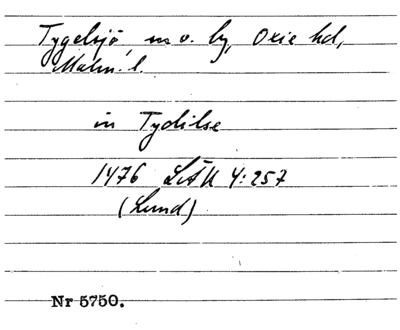 Tygelsjö, sn o. by, Oxie hd,
Malm. l.
in Tydilse
1476 LÄU 4:257
(Lund)
Nr 5750.